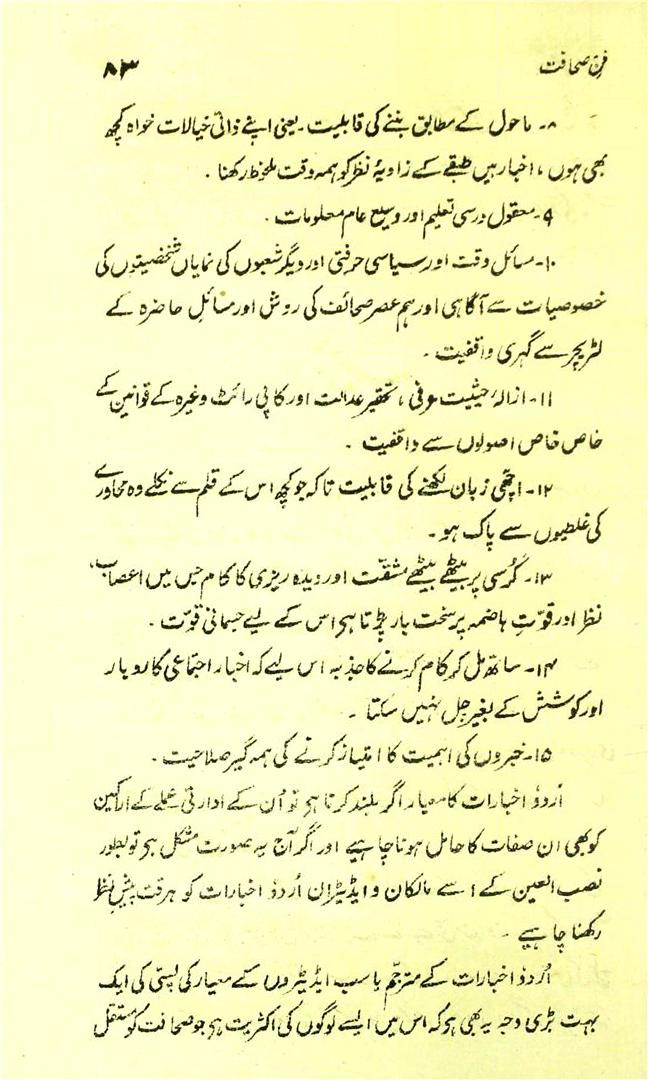 فنِ صحافت ۸۳
۸۔ ماحول کے مطابق بننے کی قابلیت۔ یعنی اپنے ذاتی خیالات خواہ کچھ
بھی ہوں، اخبار بیں طبقے کے زاویۂ نظر کو ہمہ وقت ملحوظ رکھنا۔
۹۔ معقول درسی تعلیم اور وسیع عام معلومات۔
۱۰۔ مسائل وقت اور سیاسی حرفتی اور دیگر شعبوں کی نمایاں شخصیتوں کی
خصوصیات سے آگاہی اور ہم عصر صحائف کی روش اور مسائلِ حاضرہ کے
لٹریچر سے گہری واقفیت۔
۱۱۔ ازالۂ حیثیت عرفی، تحقیر عدالت اور کاپی رائٹ وغیرہ کے قوانین کے
خاص خاص اصولوں سے واقفیت۔
۱۲۔ اچھی زبان لکھنے کی قابلیت تاکہ جو کچھ اس کے قلم سے نکلے وہ محاورے
کی غلطیوں سے پاک ہو۔
۱۳۔ کُرسی پر بیٹھے بیٹھے مشقّت اور دیدہ ریزی کا کام جس میں اعصاب،
نظر اور قوّتِ ہاضمہ پر سخت بار پڑتا ہی اس کے لیے جسمانی قوّت۔
۱۴۔ ساتھ مل کر کام کرنے کا جذبہ اس لیے کہ اخبار اجتماعی کاروبار
اور کوشش کے بغیر چل نہیں سکتا۔
۱۵۔ خبروں کی اہمیت کا امتیاز کرنے کی ہمہ گیر صلاحیت۔
اُردو اخبارات کا معیار اگر بلند کرنا ہی تو اُن کے ادارتی عملے کے اراکین
کو بھی ان صفات کا حامل ہونا چاہیے اور اگر آج یہ صورت مشکل ہی تو بطور
نصب العین کے اسے مالکان و ایڈیٹران اُردو اخبارات کو ہر وقت پیشِ نظر
رکھنا چاہیے۔
اُردو اخبارات کے مترجم یا سب ایڈیٹروں کے معیار کی پستی کی ایک
بہت بڑی وجہ یہ بھی ہی کہ اس میں ایسے لوگوں کی اکثریت ہی جو صحافت کو مستقل